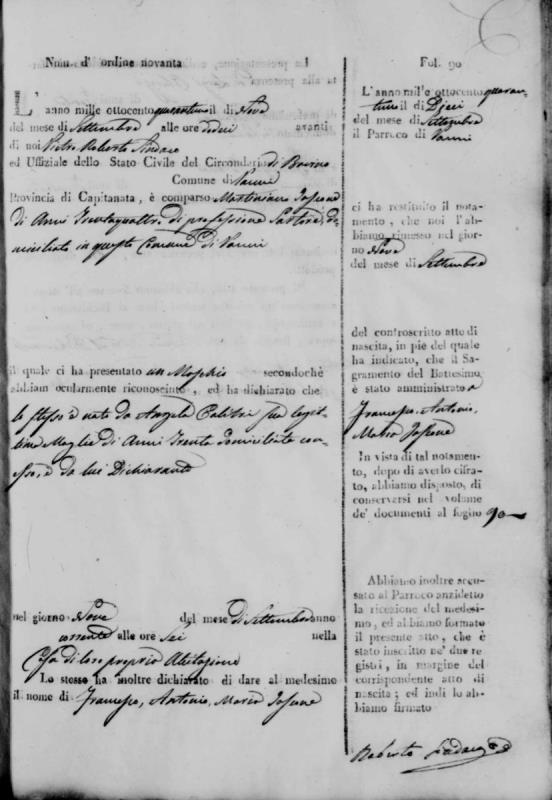 Num. d' ordine novanta
L' anno mille ottocento quarantuno il dì Nove
del mese di Settembre alle ore dodici avanti
di noi Pietro Roberto Sindaco
ed Uffiziale dello Stato Civile del Circondario di Bovino
Comune di Panni
Provincia di Capitanata, è comparso Martiniano Iossone
di Anni trentaquattro di professione Sartore do-
miciliato in questo Comune di Panni
il quale ci ha presentato un Maschio secondochè
abbiam ocularmente riconosciuto, ed ha dichiarato che
lo stesso è nato da Angela sua legit-
tima Moglie di Anni trenta domiciliata con
esso, e da lui Dichiarante
nel giorno Nove del mese di Settembre anno
corrente alle ore sei nella
Casa di loro propria Abitazione
Lo stesso ha inoltre dichiarato di dare al medesimo
il nome di Antonio, Maria Iossone
Fol. 90
L'anno mille ottocento quaran-
tuno il dì Dieci
del mese di Settembre
il Parroco di Panni
ci ha restituito il nota-
mento, che noi l'ab-
biamo rimesso nel gior-
no Nove
del mese di Settembre
del controscritto atto di
nascita, in piè del quale
ha indicato, che il Sa-
gramento del Battesimo
è stato amministrato a
Antonio,
Maria Iossone
In vista di tal notamen-
to, dopo di averlo cifra-
to, abbiamo disposto, di
conservarsi nel volume
de' documenti al foglio 90
Abbiamo inoltre accu-
sato al Parroco anzidetto
la ricezione del medesi-
mo, ed abbiamo formato
il presente atto, che è
stato inscritto ne' due re
gistri, in margine del
corrispondente atto di
nascita; ed indi lo ab-
biamo firmato
Roberto Sindaco